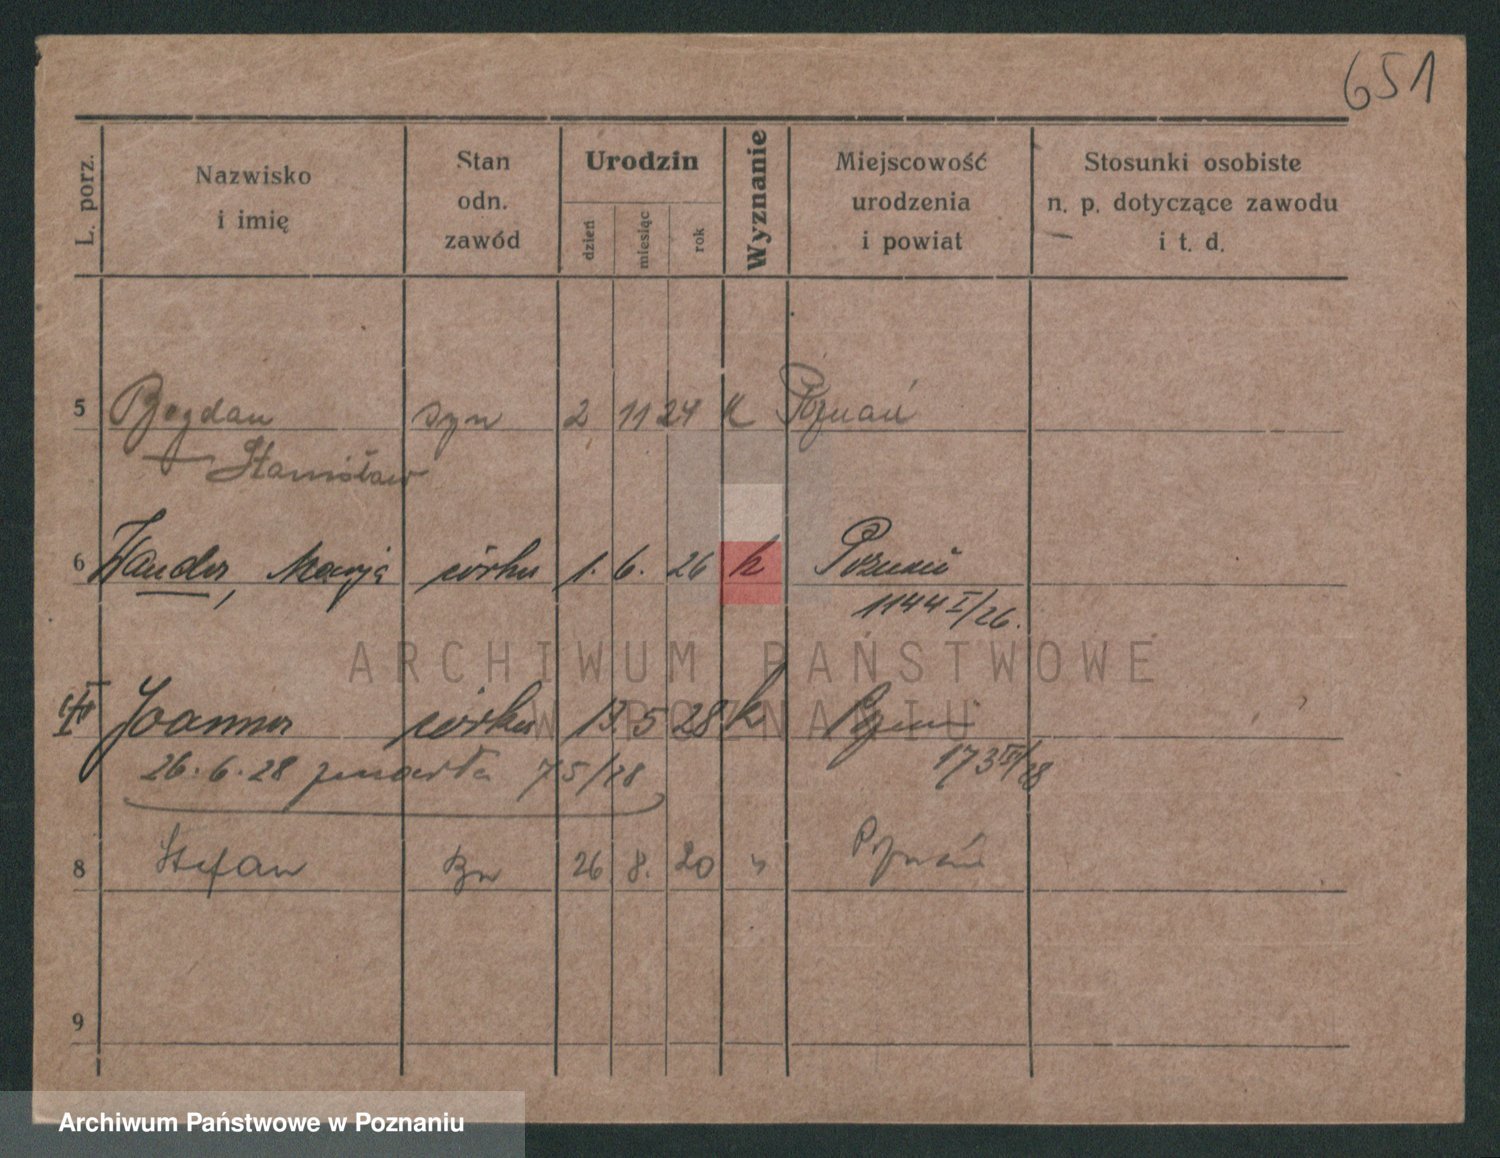 651
L. porz.
Nazwisko i imię
Stan odn. zawód
Urodzin
dzień
miesiąc
rok
Wyznanie
Miejscowość urodzenia i powiat
Stosunki osobiste n. p. dotyczące zawodu i t. d.
5 Bogdan syn 2 11 24 K Poznań
Stanisław
6 Wanda, Marja córka 1. 6. 26 k Poznań
1144 I/26.
Joanna córka 13. 5 28 k Poznań
26.6.28 zmarła 75/28 173 III/28
8 Stefan syn 26 8. 20 " Poznań
9
ARCHIWUM PAŃSTWOWE
W POZNANIU
Archiwum Państwowe w Poznaniu